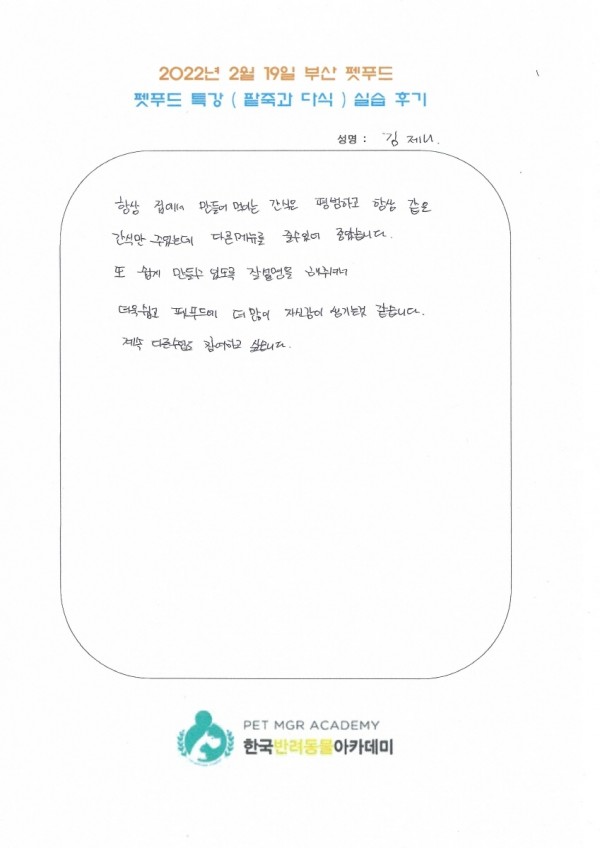 2022년 2월 19일 부산 펫푸드
펫푸드 특강 ( 팥죽과 다식 ) 실습 후기
성명 : 김 제니.
항상 집에서 만들어 먹이는 간식은 평범하고 항상 같은
간식만 주었는데 다른메뉴를 줄수있어 좋았습니다.
또 쉽게 만들수 있도록 잘설명을 해주셔서
더욱쉽고 펫푸드에 더 많이 자신감이 생기는것 같습니다.
계속 다른수업도 참여하고 싶습니다.
PET MGR ACADEMY
한국반려동물아카데미